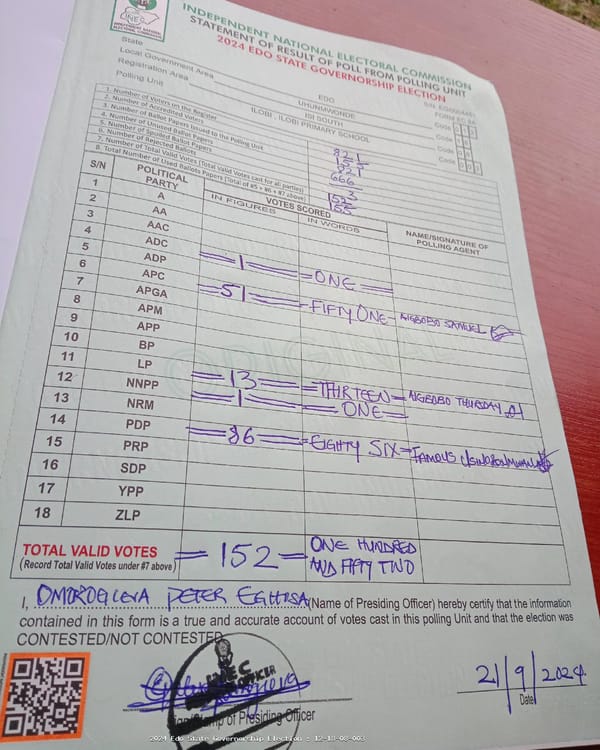 INEC
INDEPENDENT NATIONAL ELECTORAL COMMISSION
STATEMENT OF RESULT OF POLL FROM POLLING UNIT
2024 EDO STATE GOVERNORSHIP ELECTION
FORM EC 8A
State EDO Code
Local Government Area UHUNMWONDE Code
Registration Area ISI SOUTH Code
Polling Unit ILOBI , ILOBI PRIMARY SCHOOL Code
1. Number of Voters on the Register 821
2. Number of Accredited Voters
3. Number of Ballot Papers Issued to the Polling Unit 821
4. Number of Unused Ballot Papers 666
5. Number of Spoiled Ballot Papers
6. Number of Rejected Ballots 3
7. Number of Total Valid Votes (Total Valid Votes cast for all parties) 152
8. Total Number of Used Ballots Papers (Total of #5 + #6 + #7 above) 155
S/N POLITICAL PARTY VOTES SCORED NAME/SIGNATURE OF POLLING AGENT
IN FIGURES IN WORDS
1 A
2 AA
3 AAC
4 ADC =1= =ONE=
5 ADP
6 APC =51= =FIFTY ONE= AIGBOBO SAMUEL
7 APGA
8 APM
9 APP
10 BP
11 LP =13= =THIRTEEN= AIGBOBO THURSDAY
12 NNPP =1= =ONE=
13 NRM
14 PDP =86= =EIGHTY SIX= FAMOUS
15 PRP
16 SDP
17 YPP
18 ZLP
TOTAL VALID VOTES =152= ONE HUNDRED AND FIFTY TWO
(Record Total Valid Votes under #7 above)
ORIGINAL
I, PETER (Name of Presiding Officer) hereby certify that the information
contained in this form is a true and accurate account of votes cast in this polling Unit and that the election was
CONTESTED/NOT CONTESTED
INEC
Stamp of Presiding Officer
21/9/2024
Date
2024 Edo State Governorship Election : 12-18-08-003